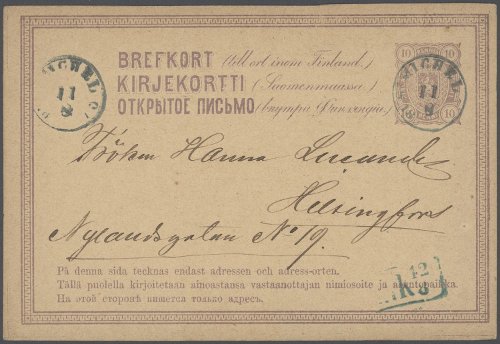 BREFKORT (till ort inom Finland.)
KIRJEKORTTI (Suomenmaassa)
ОТКРЫТОЕ ПИСЬМО (внутри Финляндіи.)
10 10
10 10
MICHEL
11
8
MICHEL
11
8
Fröken Hanna
Helsingfors
Nylandsgatan No 19.
På denna sida tecknas endast adressen och adress-orten.
Tällä puolella kirjoitetaan ainoastansa vastaanottajan nimiosoite ja asuntopaikka.
На этой сторонѣ пишется только адресъ.
12
8